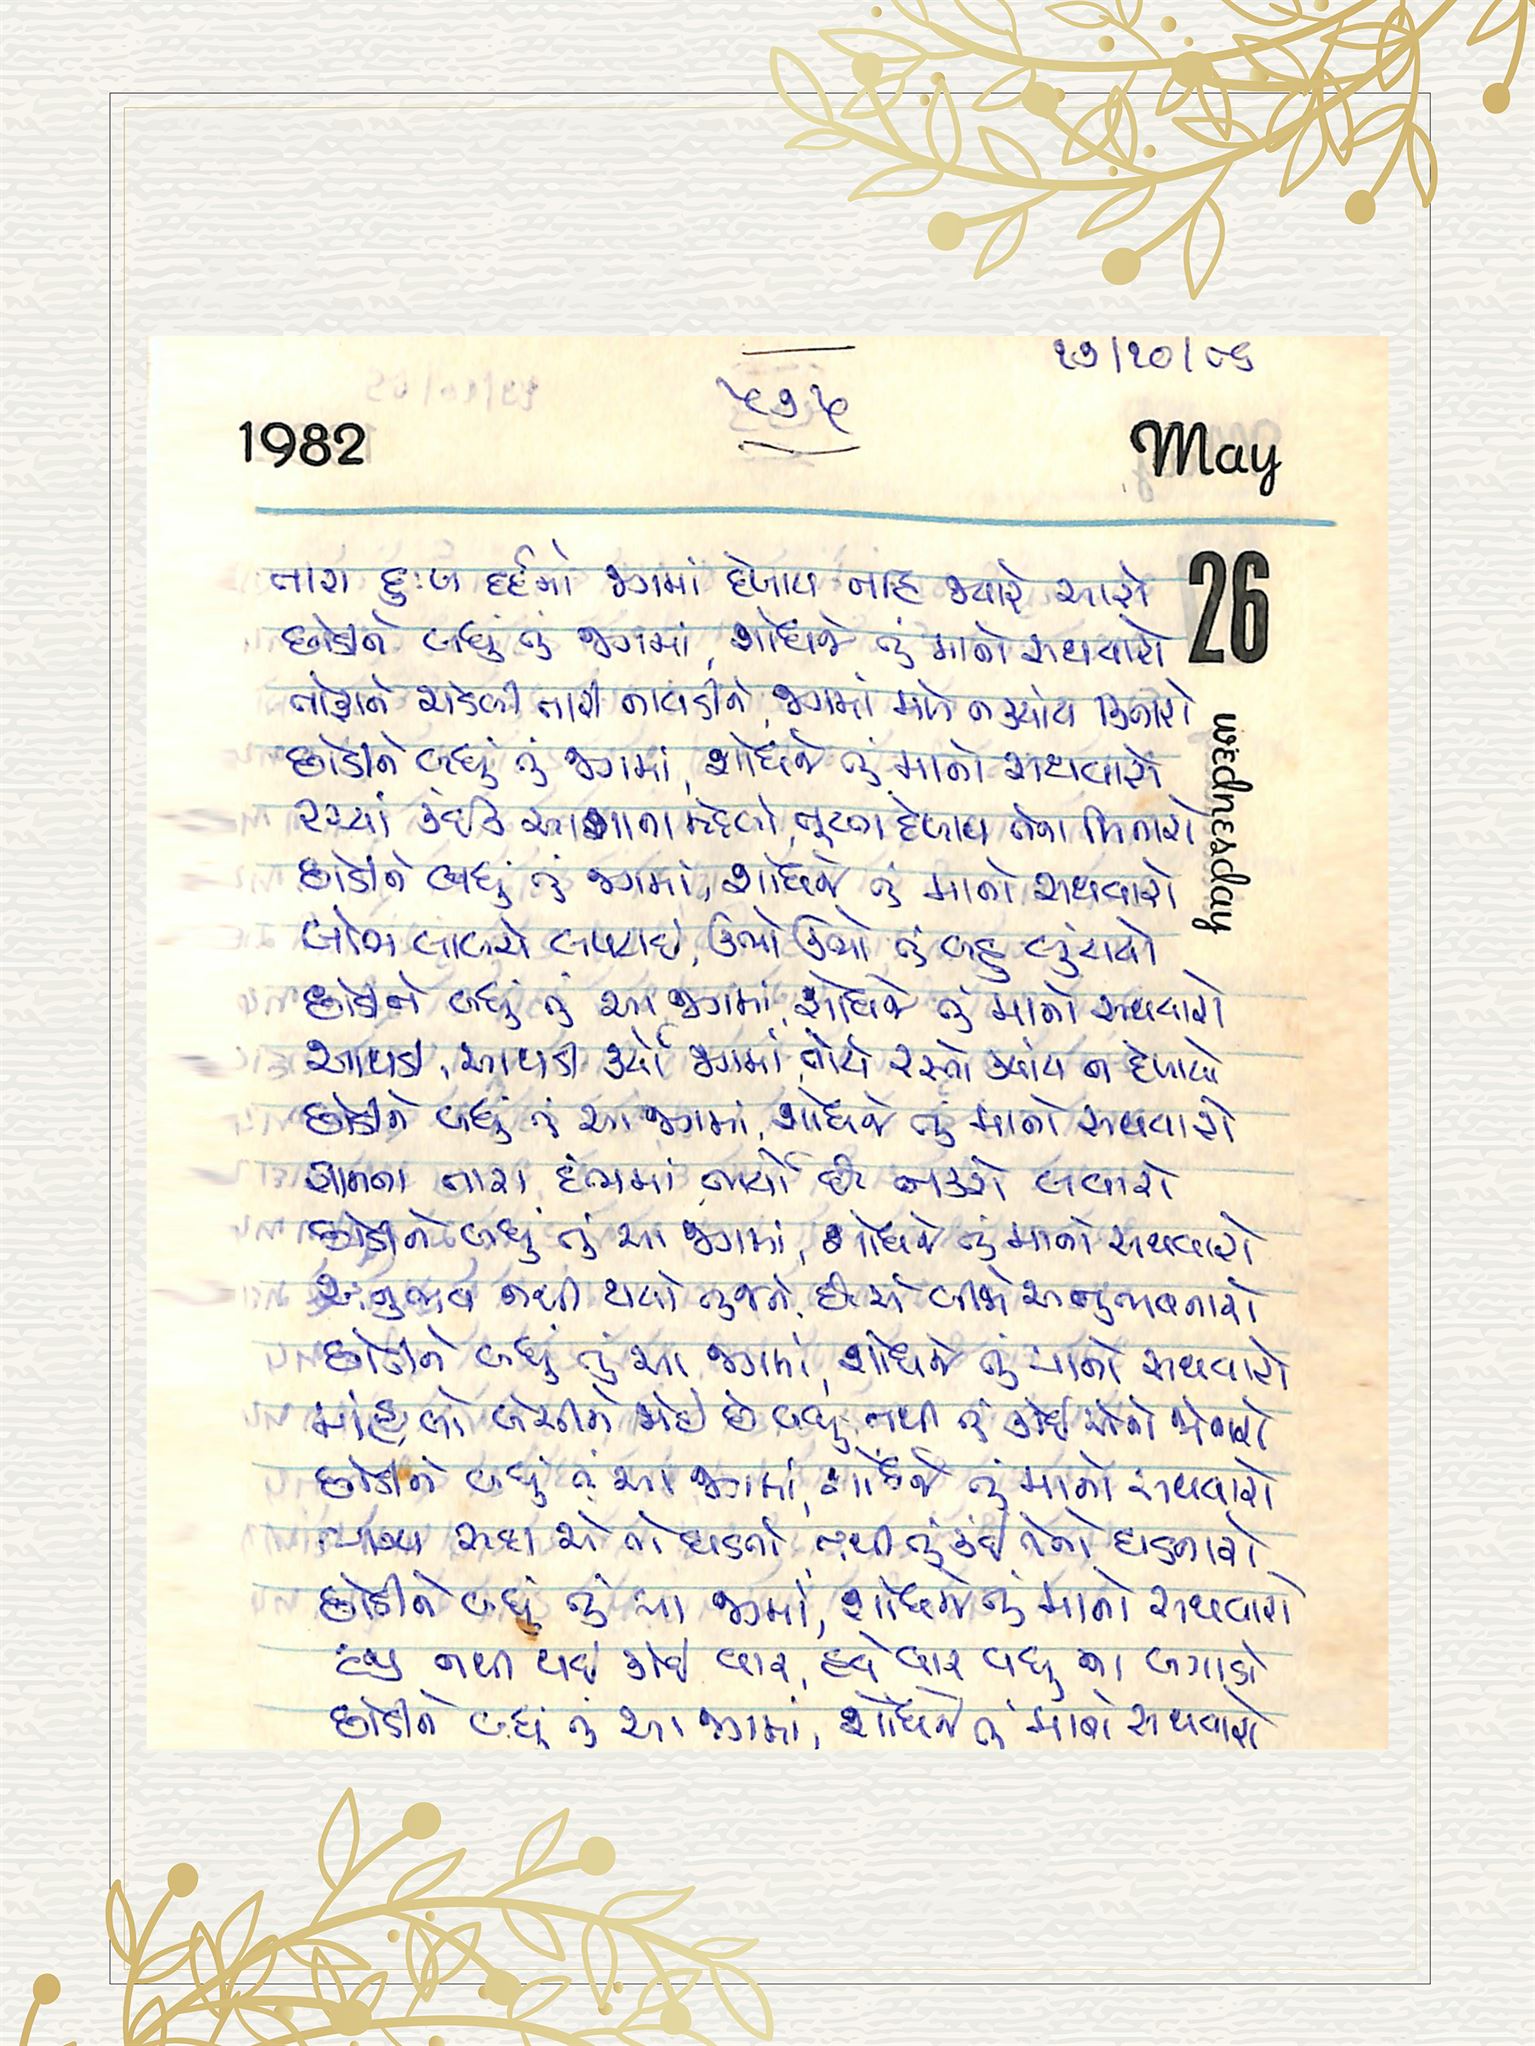 ૨૭/૧૦/૮૬
૫૭૫
1982
May
26
wednesday
તારા દુઃખ દર્દનો જગમાં દેખાય નહિ જ્યારે આરો
છોડીને બધું તું જગમાં, શોધજે તું માનો સથવારો
તોફાને ચડેલી તારી નાવડીને, જગમાં મળે ન ક્યાંય કિનારો
છોડીને બધું તું જગમાં, શોધજે તું માનો સથવારો
રચ્યાં કંઈક આશાના મહેલો, તૂટતા દેખાય તેના મિનારો
છોડીને બધું તું જગમાં, શોધજે તું માનો સથવારો
લોભ લાલચે લપટાઈ, ઊભો ઊભો તું બહુ લૂંટાયો
છોડીને બધું તું આ જગમાં, શોધજે તું માનો સથવારો
આથડી, આથડી ફર્યો જગમાં, તોયે રસ્તો ક્યાંય ન દેખાયો
છોડીને બધું તું આ જગમાં, શોધજે તું માનો સથવારો
જ્ઞાનના તારા દંભમાં, જાર્યો છે લવારો
છોડીને બધું તું આ જગમાં, શોધજે તું માનો સથવારો
અનુભવ નથી થયો તુજને, છે એ બીજો અનુભવનારો
છોડીને બધું તું આ જગમાં, શોધજે તું માનો સથવારો
માંહ્યલો બેસીને જોઈ છે બધું, નથી તું કોઈ એનો જોનારો
છોડીને બધું તું આ જગમાં, શોધજે તું માનો સથવારો
ભાગ્ય સદા એ તો ઘડતો, નથી તું કંઈ તેનો ઘડનારો
છોડીને બધું તું આ જગમાં, શોધજે તું માનો સથવારો
હજી નથી થઈ કોઈ વાર, હવે વાર વધુ ના લગાડો
છોડીને બધું તું આ જગમાં, શોધજે તું માનો સથવારો